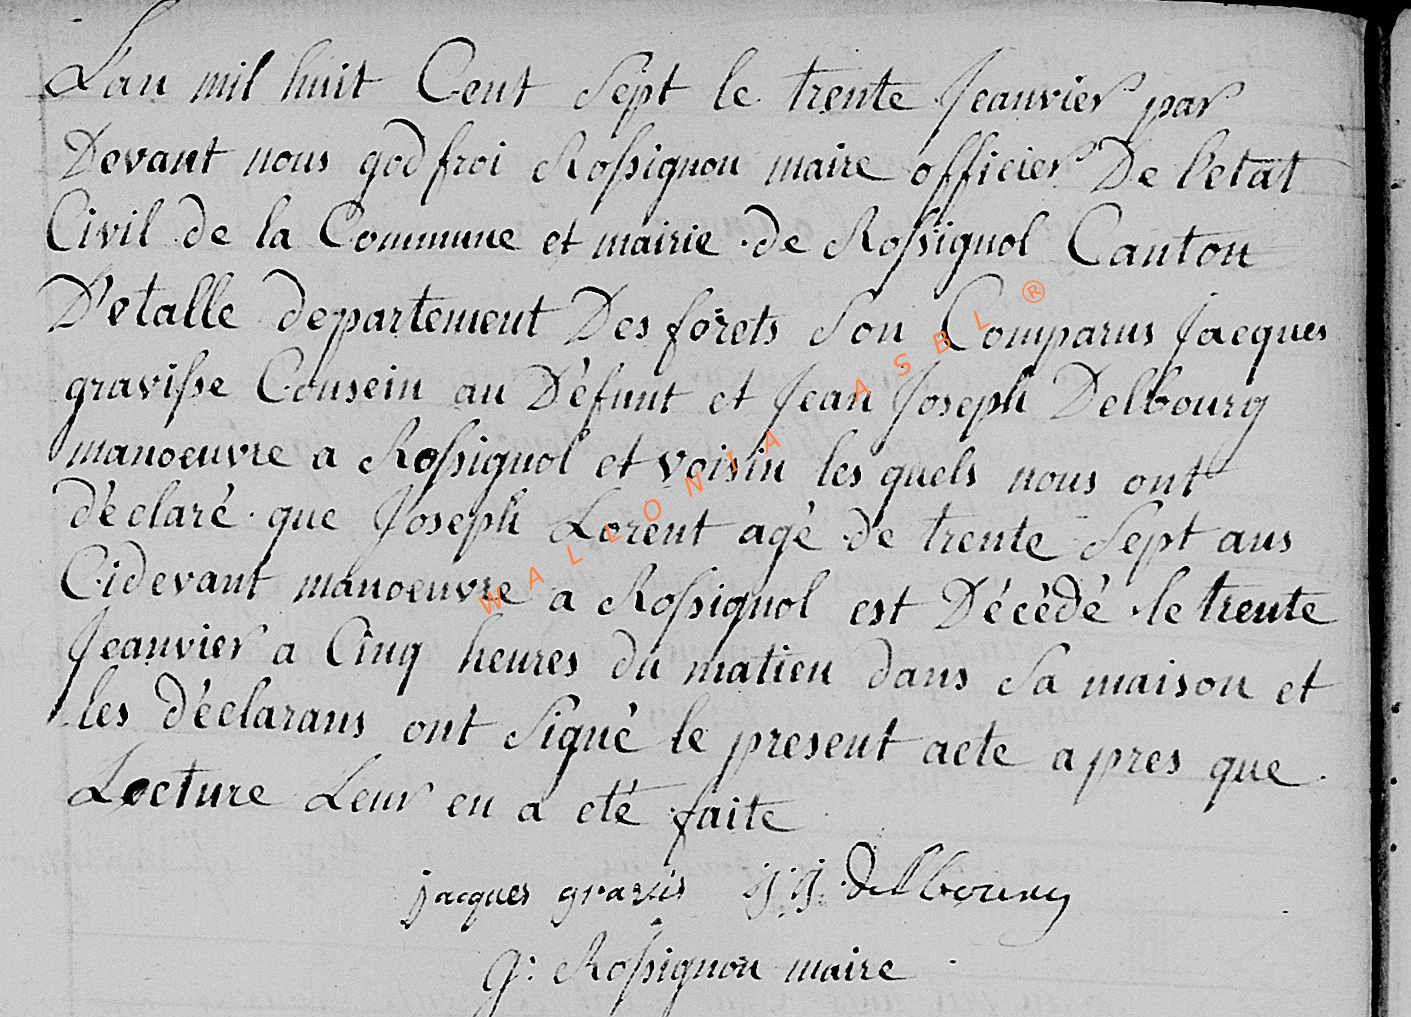 Lan mil huit Cent Sept le trente Jeanvier par
Devant nous godfroi Rossignon maire officier De l'etat
Civil de la Commune et mairie de Rossignol Canton
D'etalle departement Des forêts Son Comparus Jacques
gravisse Cousein au Défunt et Jean Joseph Delbourg
manoeuvre a Rossignol et voisin les quels nous ont
déclaré que Joseph Lorent agé de trente Sept ans
Cidevant manoeuvre a Rossignol est Décédé le trente
Jeanvier a Cinq heures du matien dans Sa maison et
les déclarans ont Signé le present acte apres que
Lecture Leur en a eté faite
jacques gravis j. j. delbourg
g: Rossignon maire
WALLONIA ASBL ®